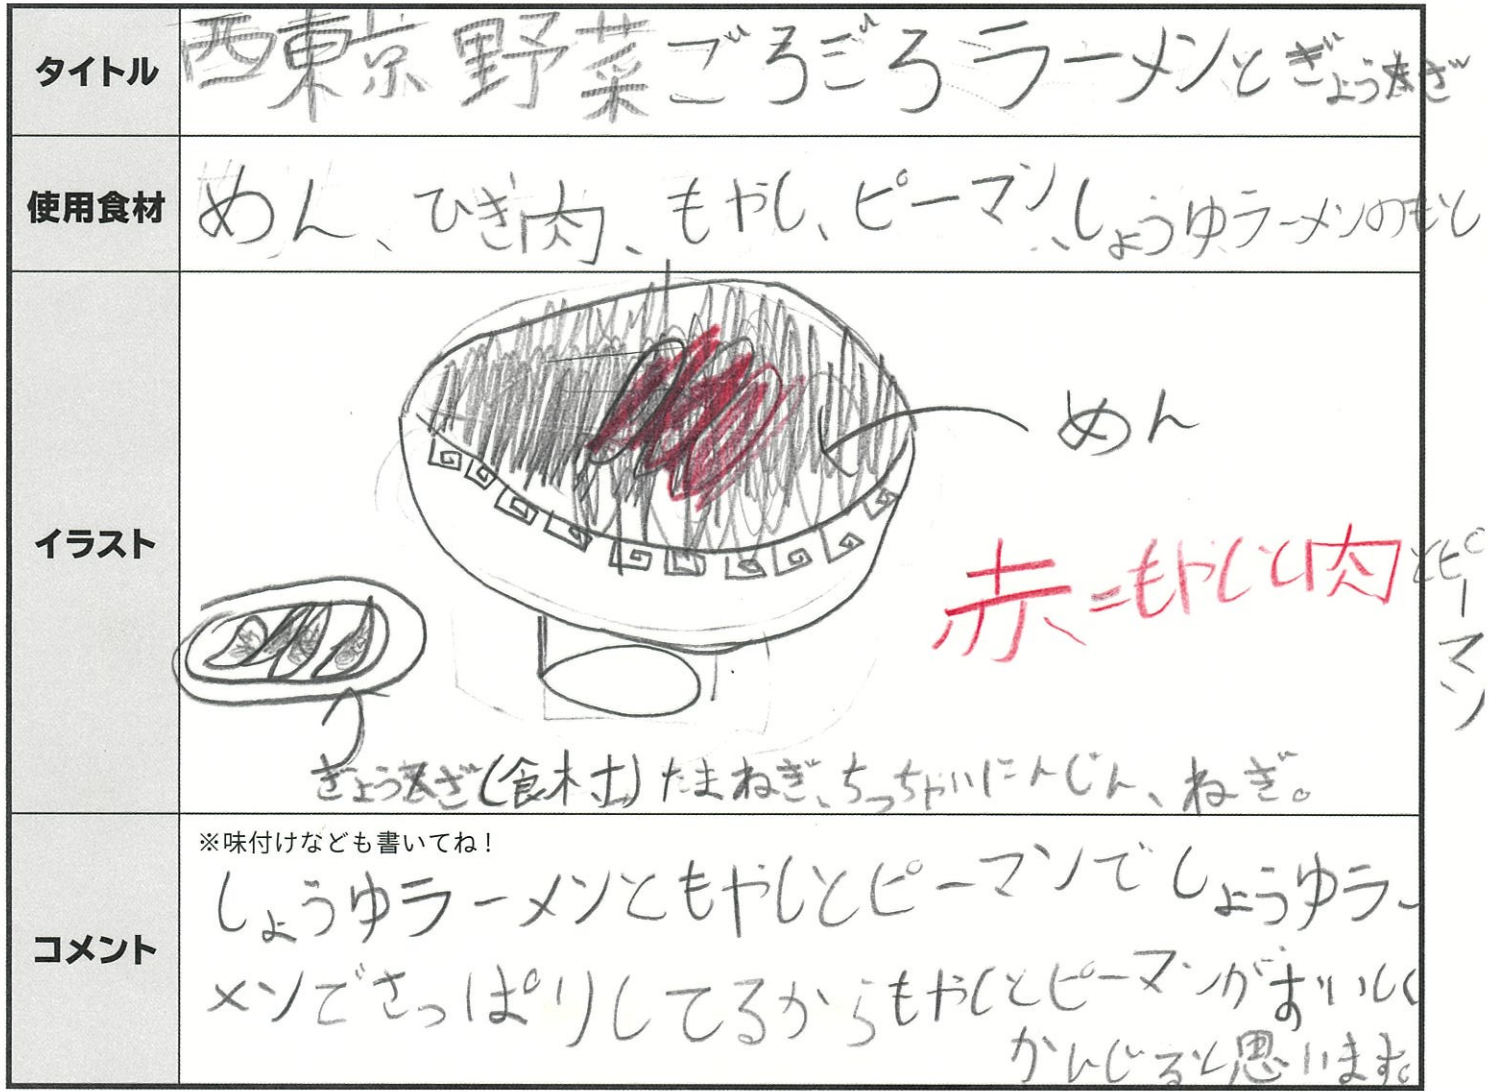 タイトル
西東京野菜ごろごろラーメンとぎょうざ
使用食材
めん、ひき肉、もやし、ピーマン、しょうゆラーメンのもと
イラスト
めん
赤=もやしと肉とピーマン
ぎょうざ(食材)たまねぎ、ちっちゃいにんじん、ねぎ。
コメント
※味付けなども書いてね!
しょうゆラーメンともやしとピーマンでしょうゆラー
メンでさっぱりしてるからもやしとピーマンがおいしく
かんじると思います。